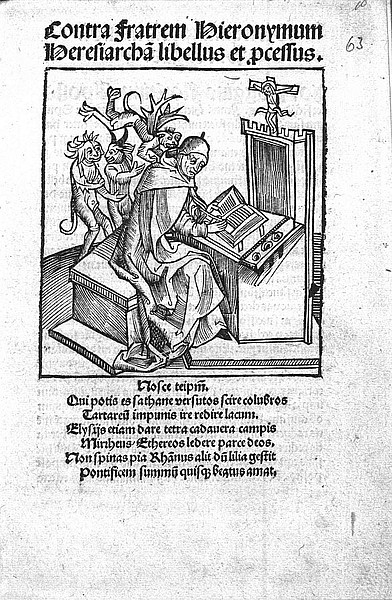 63
Contra Fratrem Hieronymum
Heresiarchā libellus et ꝓcessus.
Nosce teipm̄.
Qui potis es sathane versutos scire colubros
Tartareū impunis ire redire lacum.
Elysijs etiam dare tetra cadauera campis
Mirtheus, Ethereos ledere parce deos.
Non spinas pia Rhānus alit dū lilia gestit
Pontificem summū quisqȝ beatus amat.